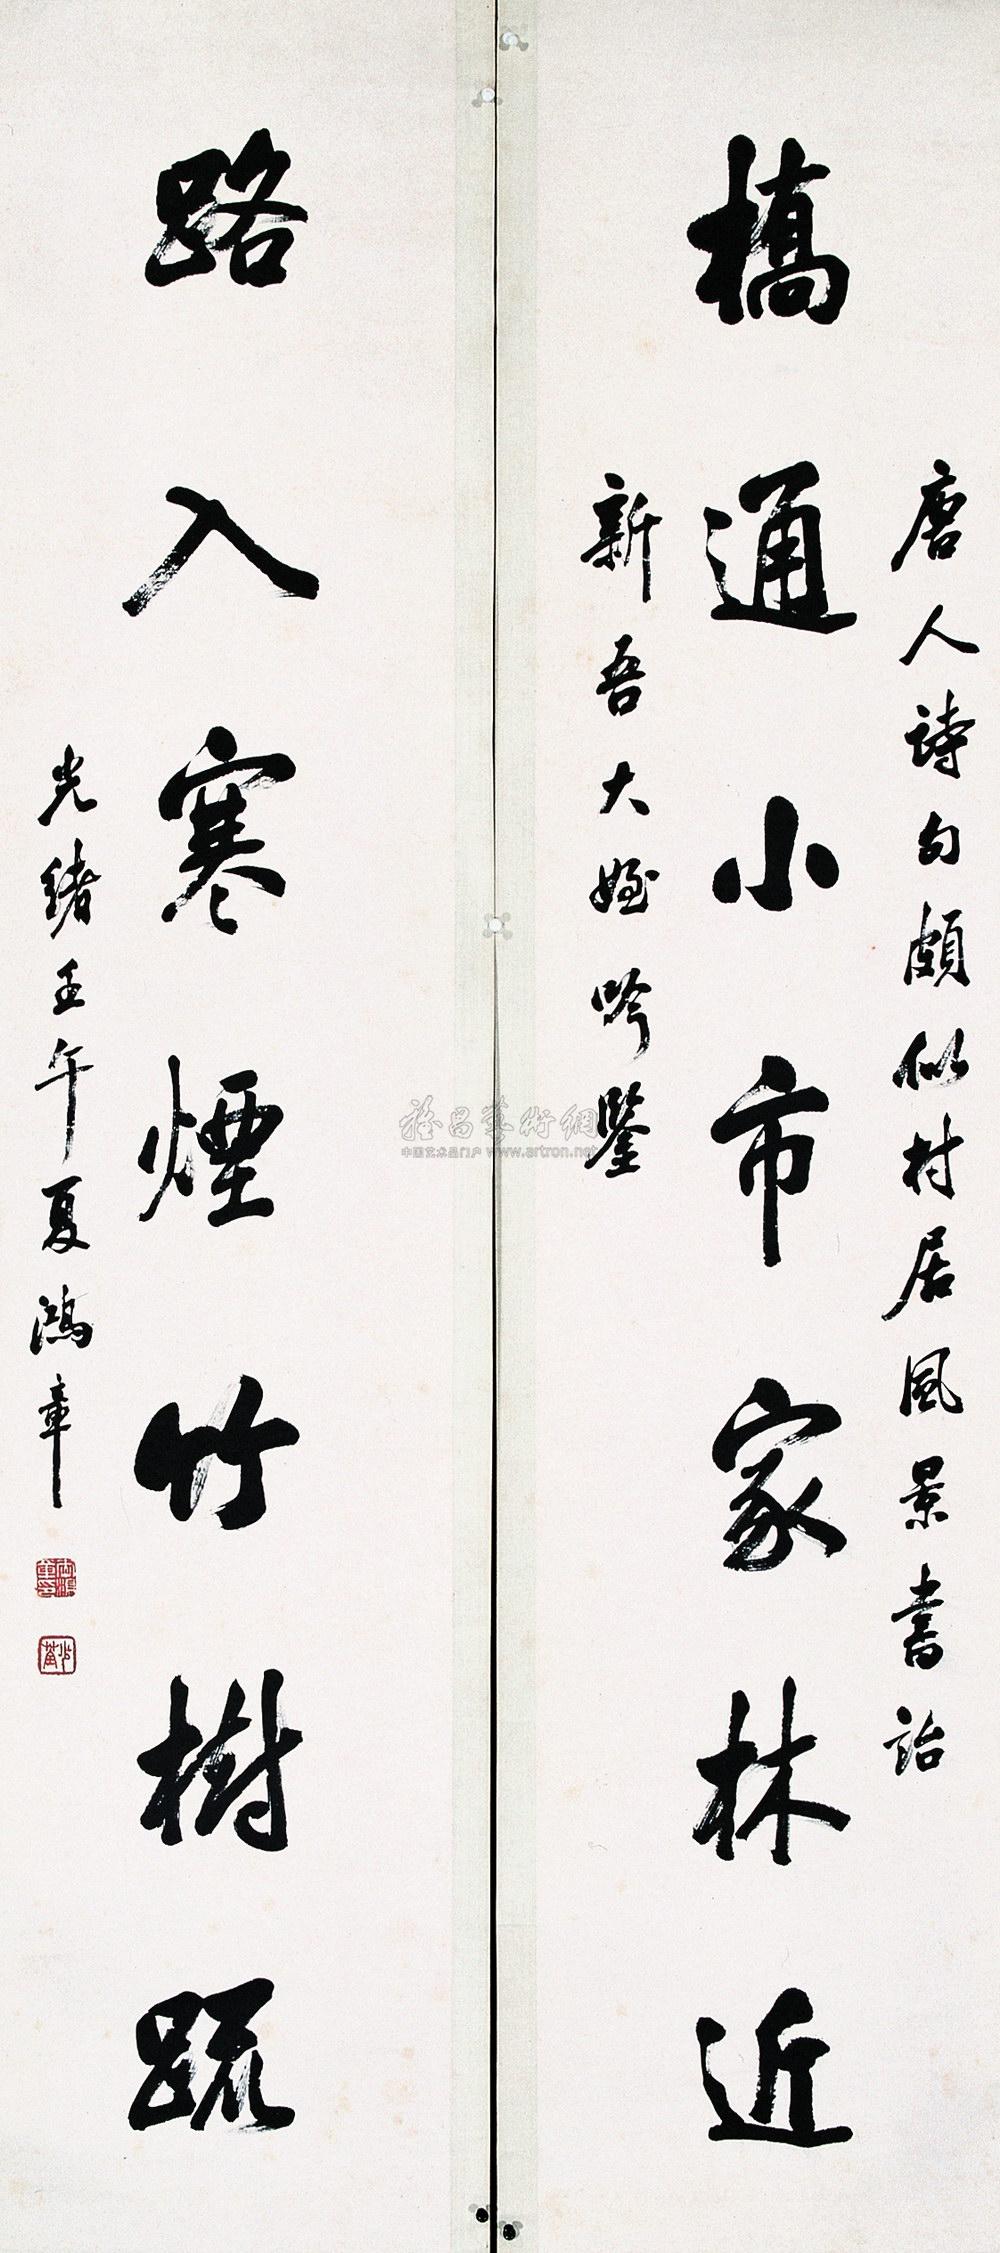 唐人詩句頗似村居風景書詒
橋通小市家林近
新吾大姪吟鑒
路入寒煙竹樹疏
光緒壬午夏鴻章
雅昌藝術網
中国艺术品门户 www.artron.net